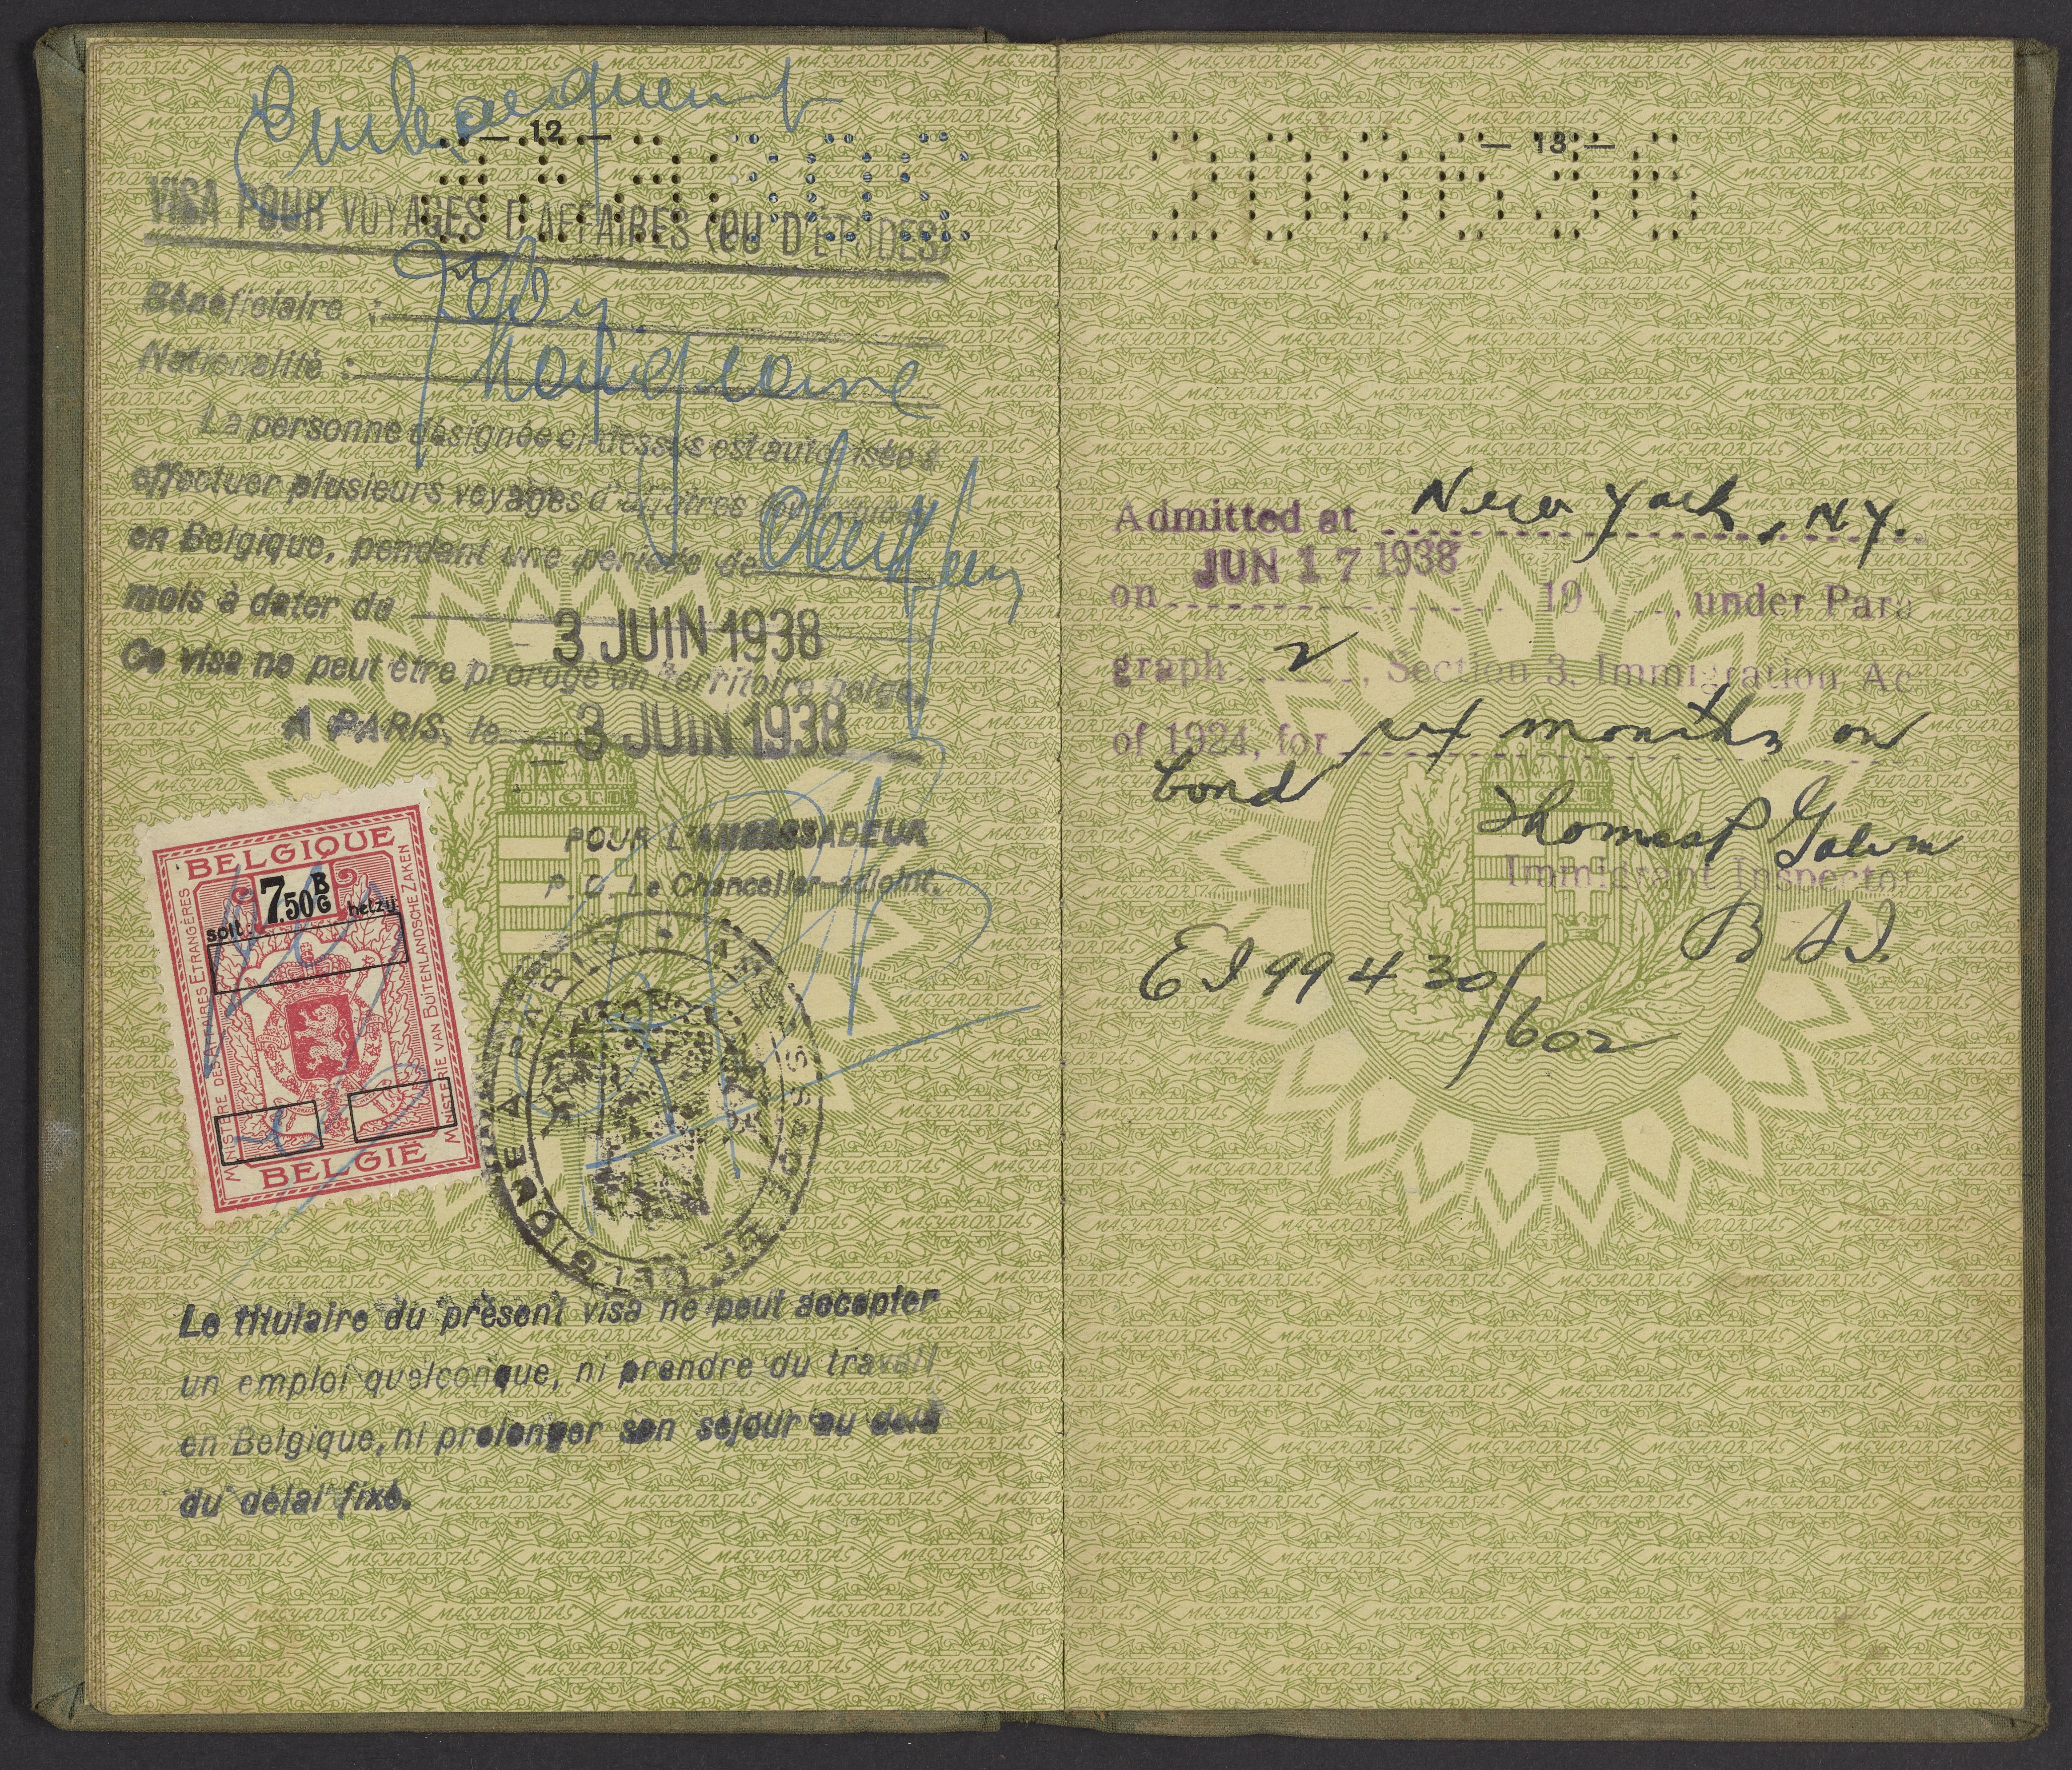 — 12 —
VISA POUR VOYAGES D'AFFAIRES (OU D'ETUDES)
Bénéficiaire :
Nationalité : Hongroise
La personne désignée ci-dessus est autorisée à
effectuer plusieurs voyages d'affaires
en Belgique, pendant une période de
mois à dater du - 3 JUIN 1938
Ce visa ne peut être prorogé en territoire belge.
A PARIS, le - 3 JUIN 1938
POUR L'AMBASSADEUR
P. O. Le Chancelier-adjoint.
BELGIQUE
7.50 B G
soit: hetzij:
MINISTÈRE DES AFFAIRES ETRANGÈRES
MINISTERIE VAN BUITENLANDSCHE ZAKEN
BELGIË
BELGIQUE A PARIS
Le titulaire du présent visa ne peut accepter
un emploi quelconque, ni prendre du travail
en Belgique, ni prolonger son séjour au delà
du délai fixé.
— 13 —
Admitted at New York, N.Y.
on JUN 17 1938 19 , under Para
graph 2, Section 3, Immigration Ac
of 1924, for six months on
bond
Immigrant Inspector
B S I.
EI 99430/602
MAGYARORSZÁG